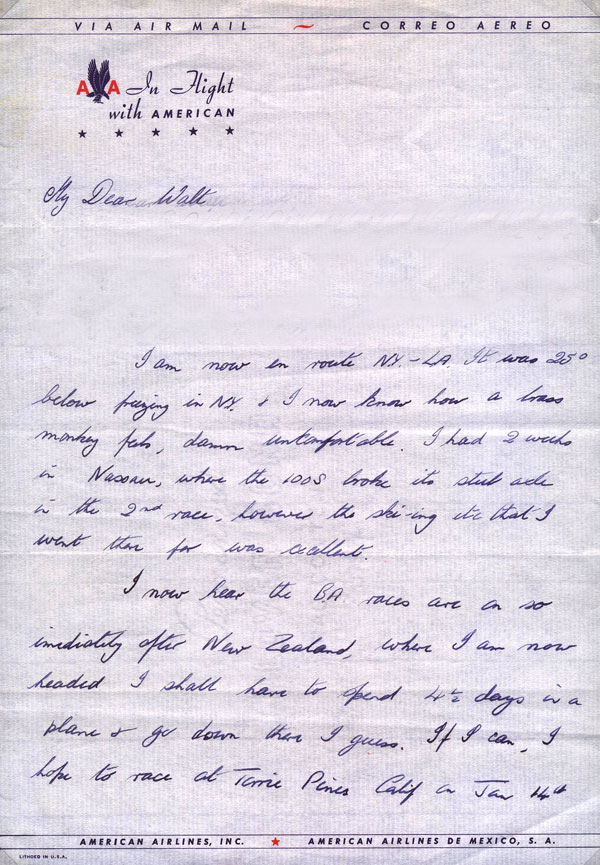 VIA AIR MAIL ~ CORREO AEREO
AA In Flight
with AMERICAN
My Dear Walt
I am now en route N.Y. - LA. It was 25°
below frezing in N.Y. & I now know how a brass
monkey feels, damn uncomfortable. I had 2 weeks
in Nassau, where the 100S broke its stub axle
in the 2nd race, however the ski-ing etc that I
went there for was excellent.
I now hear the BA races are on so
imediately after New Zealand, where I am now
headed I shall have to spend 4½ days in a
plane & go down there I guess. If I can, I
hope to race at Torrie Pines Calif on Jan 14th
AMERICAN AIRLINES, INC. ★ AMERICAN AIRLINES DE MEXICO, S. A.
LITHOED IN U.S.A.